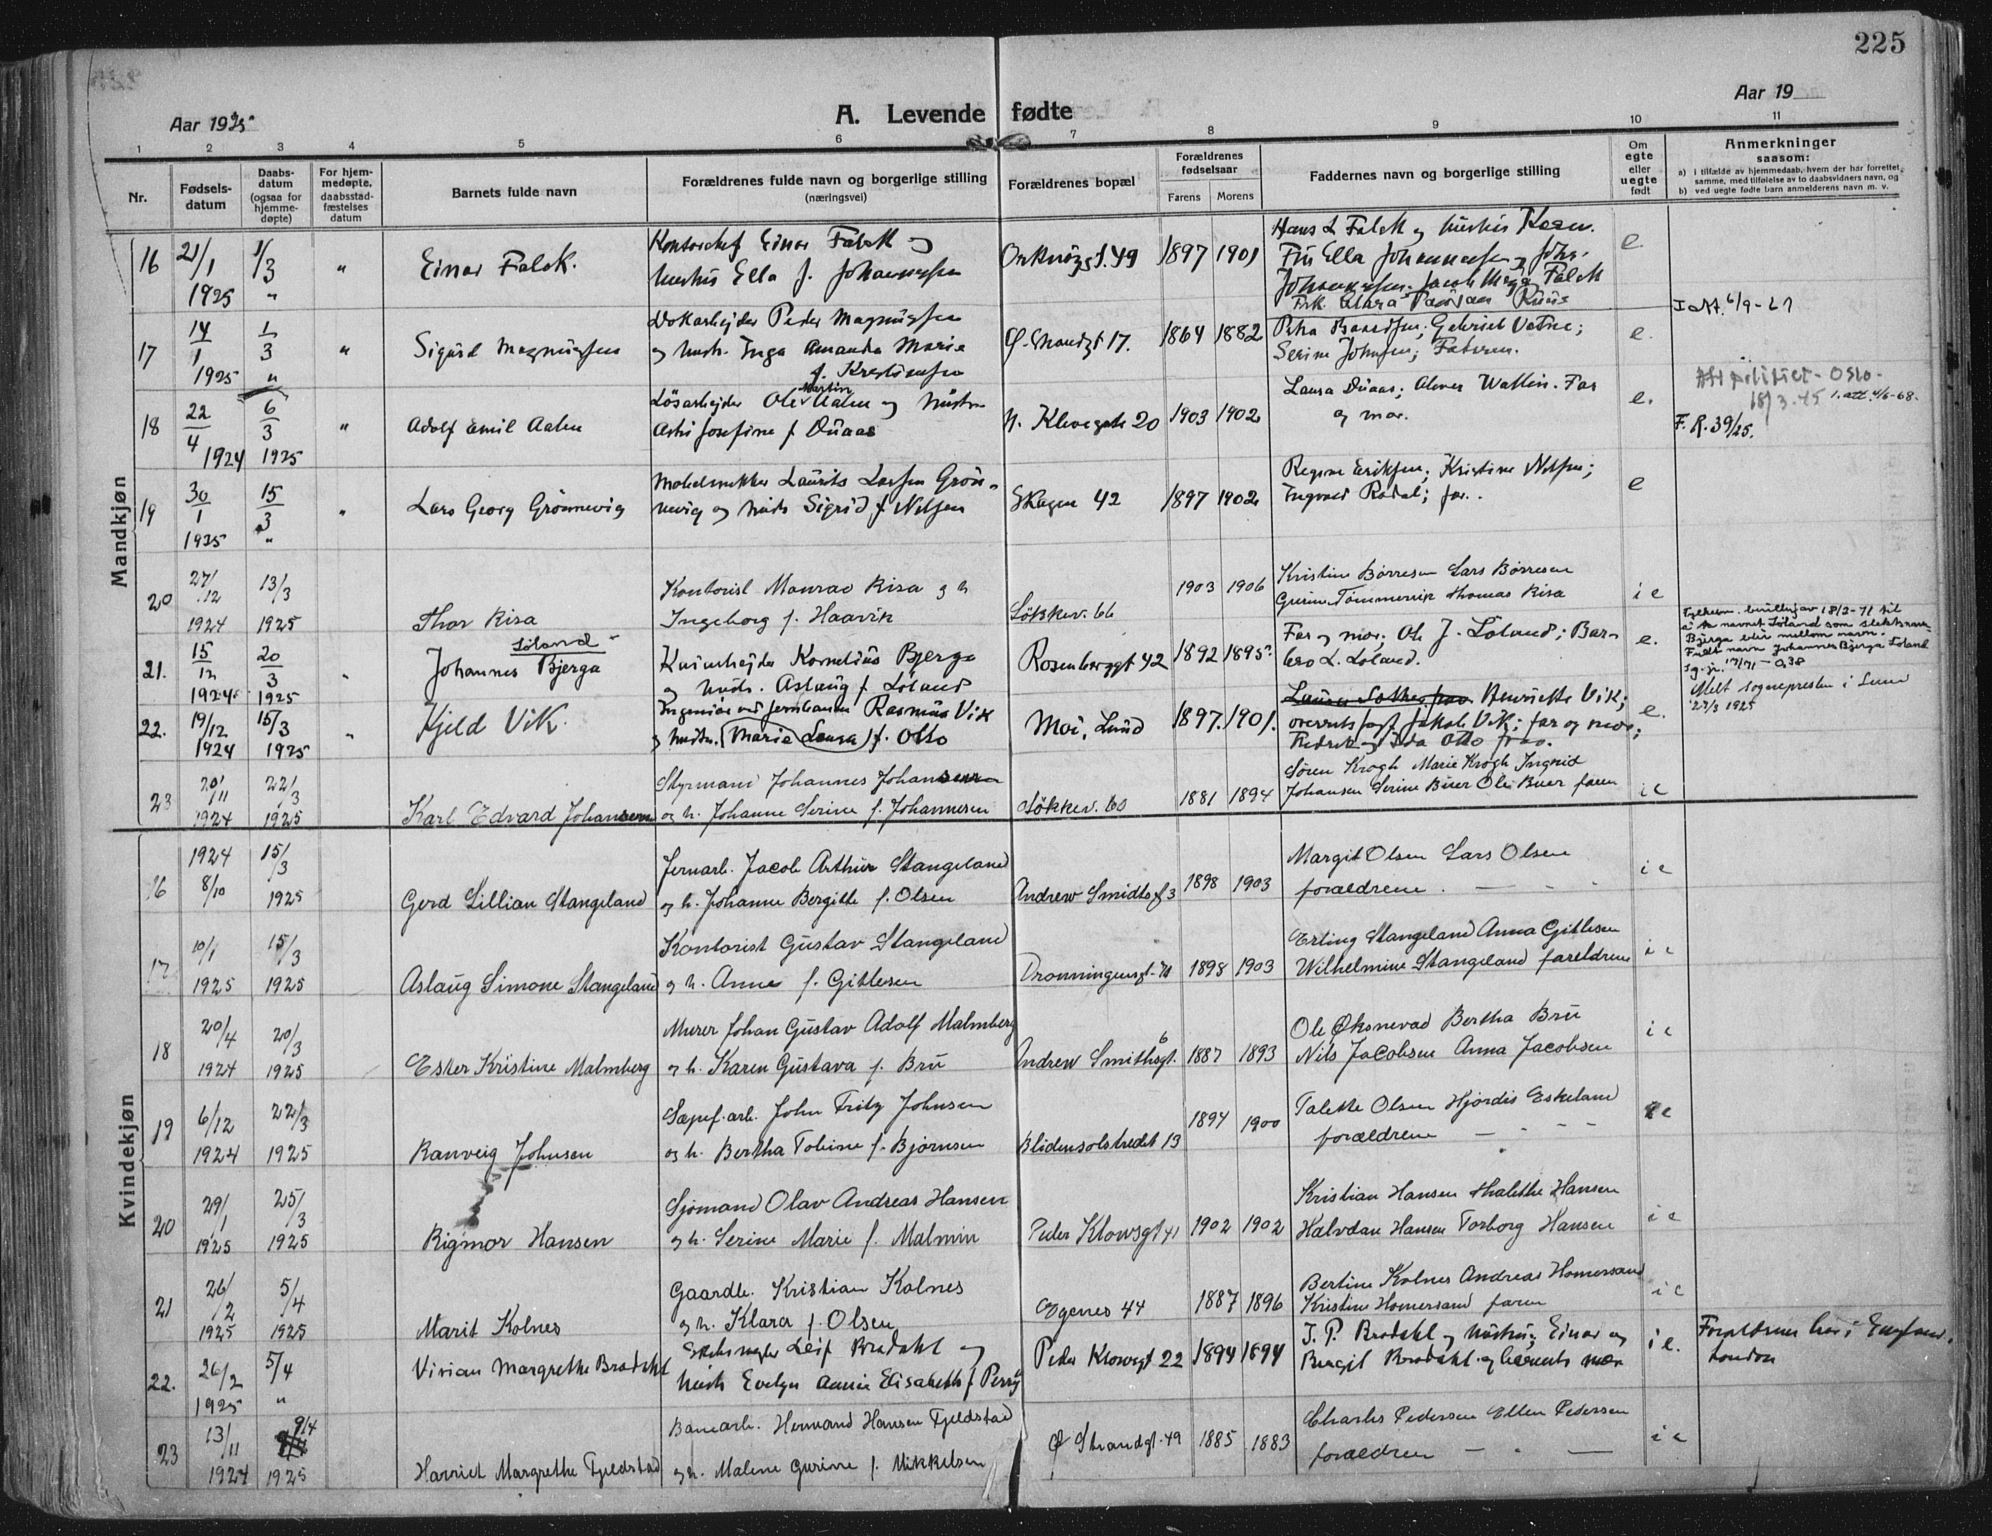 225
Aar 1925
A. Levende fødte
Aar 19
1 2 3 4 5 6 7 8 9 10 11
Nr.
Fødsels-
datum
Daabs-
datum
(ogsaa for
hjemme-
døpte)
For hjem-
medøpte,
daabsstad-
fæstelses
datum
Barnets fulde navn
Forældrenes fulde navn og borgerlige stilling
(næringsvei)
Forældrenes bopæl
Forældrenes
fødselsaar
Farens Morens
Faddernes navn og borgerlige stilling
Om
egte
eller
uegte
født
Anmerkninger
saasom:
a) i tilfælde av hjemmedaab, hvem der har forrettet
samme, med tilføielse av to daabsvidners navn, og
b) ved uegte fødte barn anmelderens navn m. v.
Mandkjøn
16 21/1 1925 1/3 " " Einar Falck.
Kontorchef Einar Falck og
hustru Ella f. Johannessen
1897 1901
Hans L Falck og hustru
Frk. Clara
e.
17 14/1 1925 1/3 " " Sigurd Magnussen
Dokarbejder Peder Magnussen
og hustr. Inga Amanda Marie
f. Kristiansen
Ø. Strandgt 17. 1864 1882
Gabriel Vatne;
Serine Johnsen; Faderen.
e.
I att. 6/9-67
18 22/4 1924 6/3 1925 " Adolf Emil Aalen
Løsarbejder Ole Martin Aalen og hustru
Josefine f. Duaas
N. Klevegate 20 1903 1902
Laura Duaas; Wallin. Far
og mor.
e.
Att politiet - Oslo -
18/3-45 1. att. 4/6-68-
F.R. 39/25.
19 30/1 1925 15/3 " " Lars Georg Grønnevig
Møbelsnekker Laurits Larsen Grøn-
nevig og hustr Sigrid f. Nilsen
Skagen 42 1897 1902
Regine Eriksen; Kristine Nilsen;
Ingvald Rødal; far.
e
20 27/12 1924 13/3 1925 Thor Risa
Kontorist Monrad Risa og h
Ingeborg f. Haavik
Løkkev. 66 1903 1906
Kristine Børresen Lars Børresen
Gurine Tømmervik Thomas Risa
i e
21. 15/12 1924 20/3 1925 " Johannes Bjerga Løland
Kornelius Bjerga
og hustr. Aslaug f. Løland
Rosenberggt 42 1892 1895
Far og mor. Ole J. Løland; Bar-
bro L. Løland.
e.
Fylkesm. bevilling av 18/2-71 til
å ta navnet Løland som slektsnavn
Bjerga blir mellom navn.
Fullt navn Johannes Bjerga Løland
22. 19/12 1924 15/3 1925 " Kjeld Vik.
Ingeniør ved jernbanen Rasmus Vik
og hustr. (Marie Laura) f. Otto
Moi, Lund 1897. 1901.
Henriette Vik;
Jakob Vik; far og mor;
Fredrik og Ida Otto
e.
Melt sognepresten i Lund
27/3 1925
23 20/11 1924 22/3 1925 Karl Edvard Johansen
Styrmand Johannes Johansen
og h. Johanne Serine f. Johannesen
Løkkev. 60 1881 1894
Søren Krogh Marie Krogh Ingrid
Johansen Serine Buer Ole Buer faren
i e
Kvindekjøn
16 1924 8/10 15/3 1925 Gerd Lillian Stangeland
Jernarb. Jacob Arthur Stangeland
og h. Johanne Bergitte f. Olsen
Andrew Smidtsgt 3 1898 1903
Margit Olsen Lars Olsen
forældrene
i e
17 10/1 1925 15/3 1925 Aslaug Simone Stangeland
Kontorist Gustav Stangeland
og h. Anna f. Gitlesen
Dronningensgt. 1898 1903
Erling Stangeland Anna Gitlesen
Wilhelmine Stangeland foreldrene
i e
18 20/4 1924 20/3 1925 Ester Kristine Malmberg
Murer Johan Gustav Adolf Malmberg
og h. Karen Gustava f. Bru
Andrew Smithsgt. 6 1887 1893
Ole Øksnevad Bertha Bru
Nils Jacobsen Anna Jacobsen
i e
19 6/12 1924 22/3 1925 Ranveig Johnsen
Sæpef.arb. John Fritz Johnsen
og h. Bertha Tobine f. Bjørnsen
Blidensolstredet 13 1894 1900
Talette Olsen Hjørdis Eskeland
forældrene
i e
20 29/1 1925 25/3 1925 Rigmor Hansen
Sjømand Olav Andreas Hansen
og h. Serine Marie f. Malmin
Peder Klowsgt 41 1902 1902
Kristian Hansen Thalethe Hansen
Halvdan Hansen Torborg Hansen
i e
21 26/2 1925 5/4 1925 Marit Kolnes
Gaardbr. Kristian Kolnes
og h. Klara f. Olsen
Egenes 44 1887 1896
Bertine Kolnes Andreas Homersand
Kristine Homersand faren
i e
22. 26/2 1925 5/4 " Vivian Margrethe Brodahl
Leif Brodahl og
hustr Evelyn Annie Elisabeth f Perry
Peder Klowsgt 22 1894 1894
J. P. Brodahl og hustru; Einar og
Bergit Brodahl og barnets mor
i e.
Forældrene bor i England.
London
23 13/11 1924 9/4 1925 Harriet Margrethe Fjeldstad
Banearb. Hermand Hansen Fjeldstad
og h. Malene Gurine f. Mikkelsen
Ø Strandgt. 49 1885 1883
Charles Pedersen Ellen Pedersen
forældrene
i e